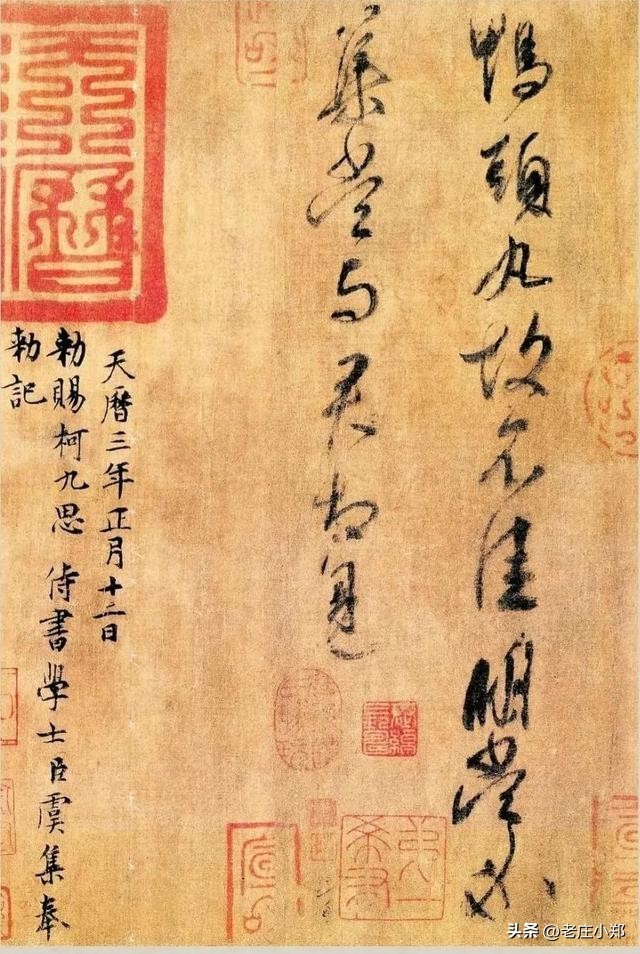 鴨頭丸故不佳明當必
集當與君相見
天曆三年正月十二日
勑賜柯九思侍書學士臣虞集奉
勑記
头条 @老庄小郑